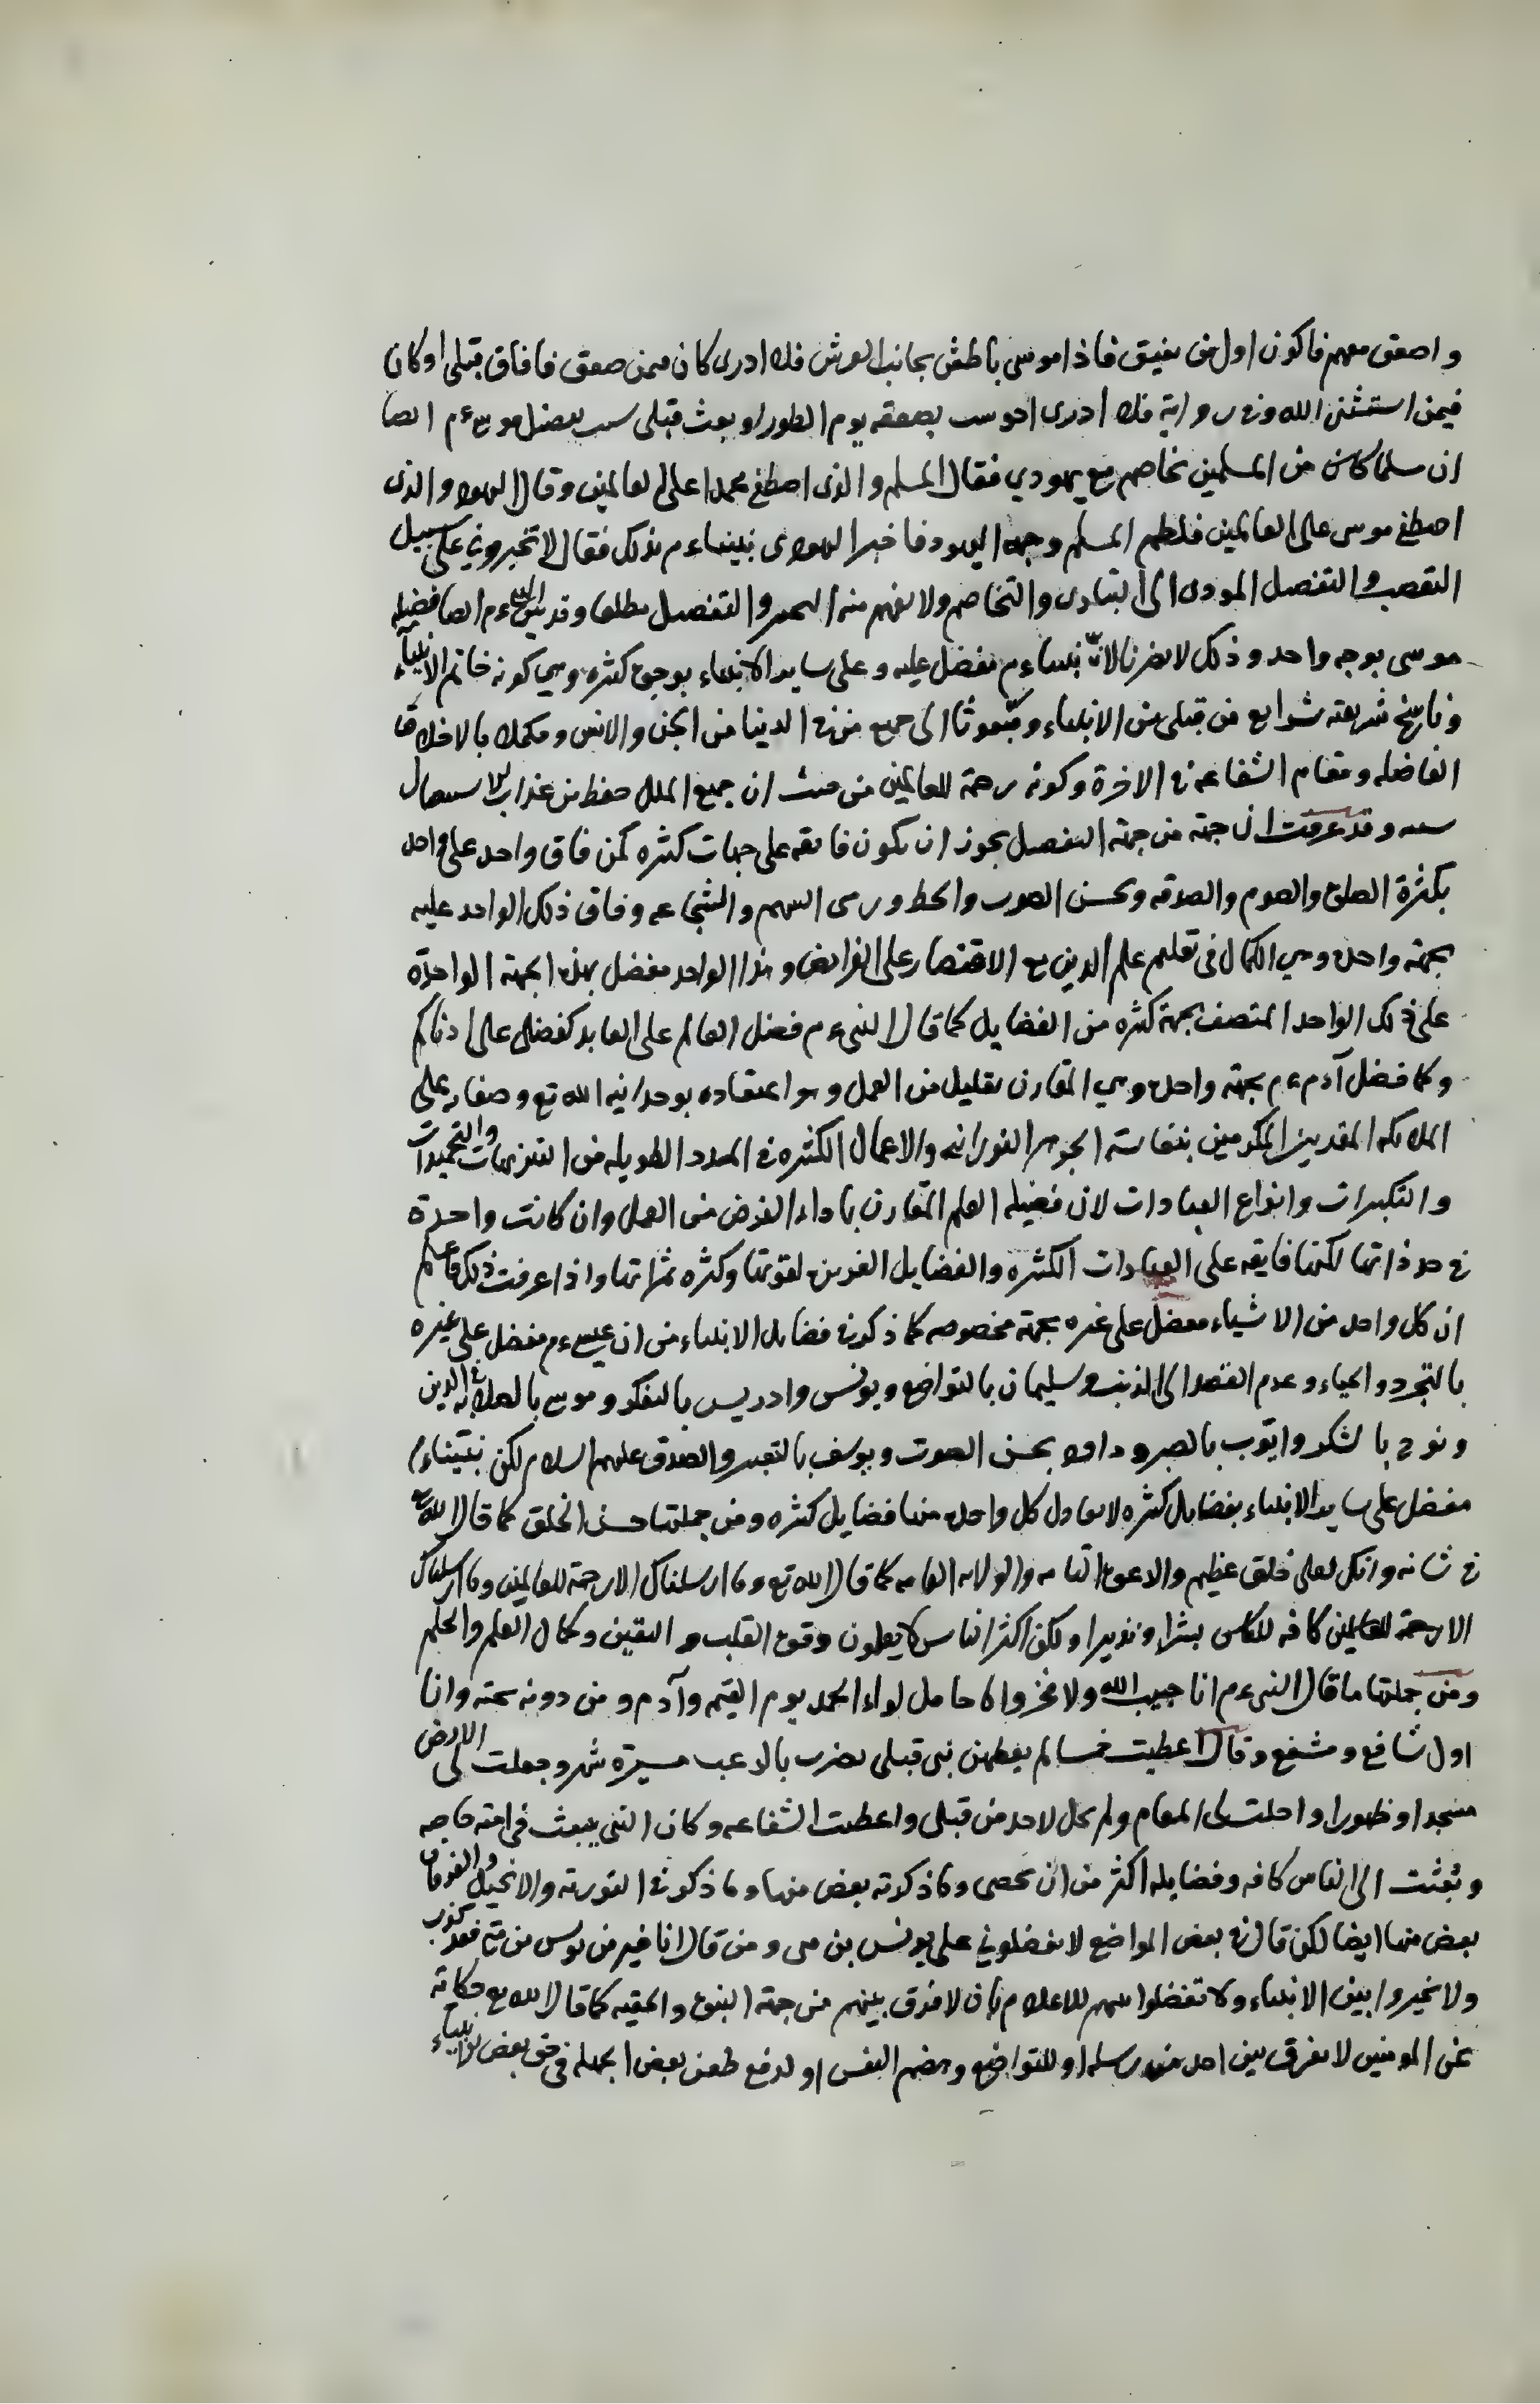 واصعق معهم فاكون اول من يفيق فاذا موسى باطش بجانب العرش فلا ادرى كان فيمن صعق فافاق قبلى او كان
فيمن استثنى الله وفى رواية فلا ادرى احوسب بصعقه يوم الطور او بعث قبلى سبب تفضل موسى ءم ايضا
ان مسلما كان من المسلمين تخاصم مع يهودي فقال المسلم والذى اصطفى محمدا على العالمين وقال اليهود والذى
اصطفى موسى على العالمين فلطم المسلم وجه اليهود فاخبر اليهودى نبينا ءم بذلك فقال لا تخبرونى على سبيل
التعصب والتفضيل المودى الى التعادى والتخاصم ولا يفهم منه التخير والتفضيل مطلقا وقد بين النبى ءم ايضا فضيله
موسى بوجه واحد وذلك لا يضرنا لان نبينا ءم مفضل عليه وعلى ساير الانبياء بوجوه كثيره وهي كونه خاتم الانبياء
وناسخ شريعته شرايع من قبلى من الانبياء ومبعوثا الى جميع من فى الدنيا من الجن والانس ومكملا بالاخلاق
الفاضله ومقام الشفاعه فى الاخرة وكونه رحمة للعالمين من حيث ان جميع الملل حفظ من عذاب الاستيصال
وقد عرفت ان جهة من جهة التفضيل يجوز ان يكون فايقه على جهات كثيره كمن فاق واحد على واحد
بكثرة الصلوة والصوم والصدقه وبحسن الصوت والخط ورمى السهم والشجاعه وفاق ذلك الواحد عليه
بجهة واحدة وهي الكمال فى تعليم علم الدين مع الاقتصار على الفرايض وهذا الواحد مفضل بهذه الجهة الواحدة
على ذلك الواحد المتصف بجهة كثيره من الفضايل كما قال النبى ءم فضل العالم على العابد كفضلى على ادناكم
وكما فضل آدم ءم بجهة واحدة وهي المقارن بقليل من العمل وهو اعتقاده بوحدانيه الله تع وصفاته على
الملائكه المقدسين المكرمين بنفاسته الجوهر النورانيه والاعمال الكثيره فى المدد الطويله من التنزيهات والتحميدات
والتكبيرات وانواع العبادات لان فضيله العلم المقارن باداء الفرض من العمل وان كانت واحدة
فى حد ذاتها لكنها فايقه على العبادات الكثيره والفضايل لقوتها وكثره ثمراتها واذا عرفت ذلك فاعلم
ان كل واحد من الاشياء مفضل على غيره بجهة مخصوصه كما ذكر فى فضايل الانبياء من ان عيسى ءم مفضل على غيره
بالتجرد والحياء وعدم القصد الى الذنب وسليمان بالتواضع ويونس وادريس بالتفكر وموسى بالصلابة فى الدين
ونوح بالشكر وايّوب بالصبر وداود بحسن الصوت ويوسف بالتعبير والصدق عليهم السلام لكن نبيّنا ءم
مفضل على ساير الانبياء بفضايل كثيره لا يعادل كل واحدة منها فضايل كثيره ومن جملتها حسن الخلق كما قال الله تع
فى شانه وانك لعلى خلق عظيم والدعوة التامه والولايه العامه كما قال الله تع وما ارسلناك الا رحمة للعالمين وما ارسلناك
الا رحمة للعالمين كافه للناس بشيرا ونذيرا ولكن اكثر الناس لا يعلمون وقوة القلب و اليقين وكمال العلم والحلم
ومن جملتها ما قال النبى ءم انا حبيب الله ولا فخر وانا حامل لواء الحمد يوم القيمه وآدم ومن دونه تحته وانا
اول شافع ومشفع وقال اعطيت خمسا لم يعطهن نبى قبلى نصرت بالرعب مسيرة شهر وجعلت لى الارض
مسجدا وطهورا واحلت لى الغنايم ولم يحل لاحد من قبلى واعطيت الشفاعه وكان النبى يبعث فى امته خاصه
وبُعثت الى الناس كافه وفضايله اكثر من ان تحصى وما ذكرته بعض منها وما ذكر فى التورية والانجيل والفرقان
بعض منها ايضا لكن قال فى بعض المواضع لا تفضلونى على يونس بن متى ومن قال انا خير من يونس بن متى فقد كذب
ولا تخيروا بين الانبياء ولا تفضلوا بينهم للاعلام بان لا فرق بينهم من جهة النبوة والحقيه كما قال الله تع حكاية
عن المومنين لا نفرق بين احد من رسله او للتواضع وهضم النفس او لدفع طعن بعض الجهله فى حق بعض الانبياء